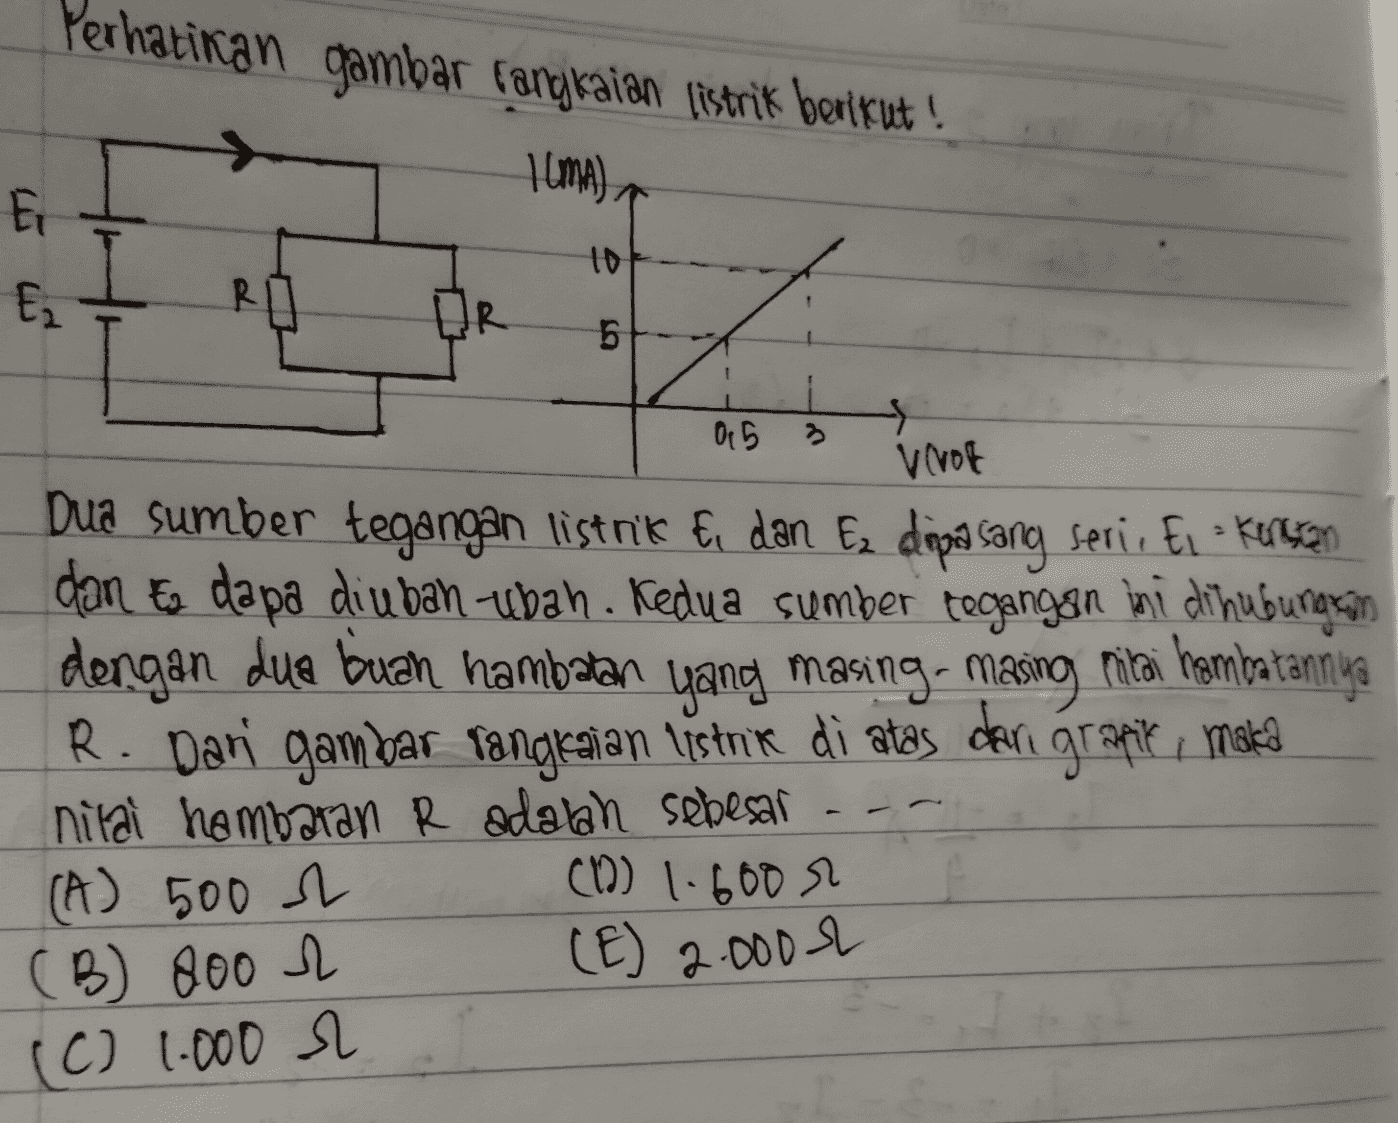 Perhatikan gambar rangkaian listrik berikut!
I(mA)
E1
10
R
E2
R
5
0,5 3
V(volt
Dua sumber tegangan listrik E1 dan E2 dipasang seri, E1 = konstan
dan E2 dapa diubah-ubah. Kedua sumber tegangan ini dihubungkan
dengan dua buah hambatan yang masing-masing nilai hambatannya
R. Dari gambar rangkaian listrik di atas dan grafik, maka
nilai hambatan R adalah sebesar ---
(A) 500 Ω (D) 1.600 Ω
(B) 800 Ω (E) 2.000 Ω
(C) 1.000 Ω